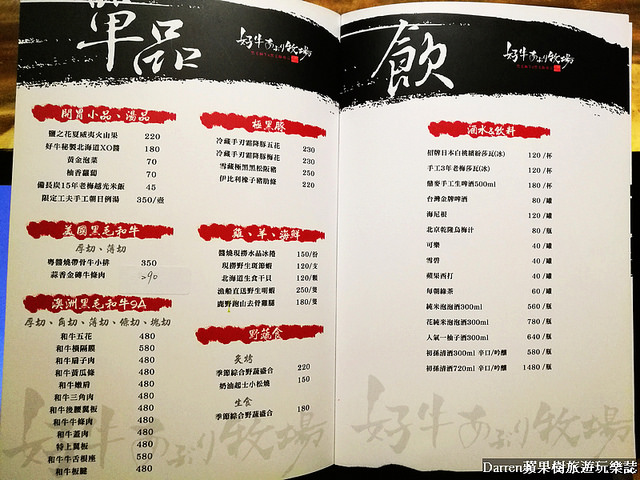 單品
好牛あぶり牧場
開胃小品、湯品
鹽之花夏威夷火山果 220
好牛秘製北海道XO醬 180
黃金泡菜 70
柚香蘿蔔 70
備長炭15年老梅越光米飯 45
限定工夫手工朝日例湯 350/壺
美國黑毛和牛
厚切、薄切
粵醬燒帶骨牛小排 350
蒜香金磚牛條肉 290
澳洲黑毛和牛9A
厚切、角切、薄切、條切、塊切
和牛五花 480
和牛橫隔膜 580
和牛扇子肉 480
和牛黃瓜條 480
和牛嫩肩 480
和牛三角肉 480
和牛後腰翼板 480
和牛牛條肉 480
和牛蓋肉 480
特上翼板 480
和牛牛舌根座 580
和牛板腱 480
極黑豚
冷藏手刃霜降豚五花 230
冷藏手刃霜降豚梅花 230
雪藏極黑黑松阪豬 250
伊比利橡子豬肋條 220
雞、羊、海鮮
醬燒現撈水晶冰捲 150/份
現撈野生斑節蝦 120/支
北海道生食干貝 120/顆
漁船直送野生明蝦 250/隻
鹿野跑山去骨雞腿 180/隻
野蔬食
炙烤
季節綜合野蔬盛合 220
奶油起士小松燒 150
生食
季節綜合野蔬盛合 180
好牛あぶり牧場
飲
好牛あぶり牧場
酒水&飲料
招牌日本白桃繽紛莎瓦(冰) 120/杯
手工3年老梅莎瓦(冰) 120/杯
戇麥手工生啤酒500ml 180/杯
台灣金牌啤酒 80/罐
海尼根 120/罐
北京乾隆烏梅汁 80/瓶
可樂 40/罐
雪碧 40/罐
蘋果西打 40/罐
每朝綠茶 60/罐
純米泡泡酒300ml 560/瓶
花純米泡泡酒300ml 780/瓶
人氣一柚子酒300ml 640/瓶
初孫清酒300ml 辛口/吟釀 580/瓶
初孫清酒720ml 辛口/吟釀 1480/瓶
好牛あぶり牧場
Darren蘋果樹旅遊玩樂誌